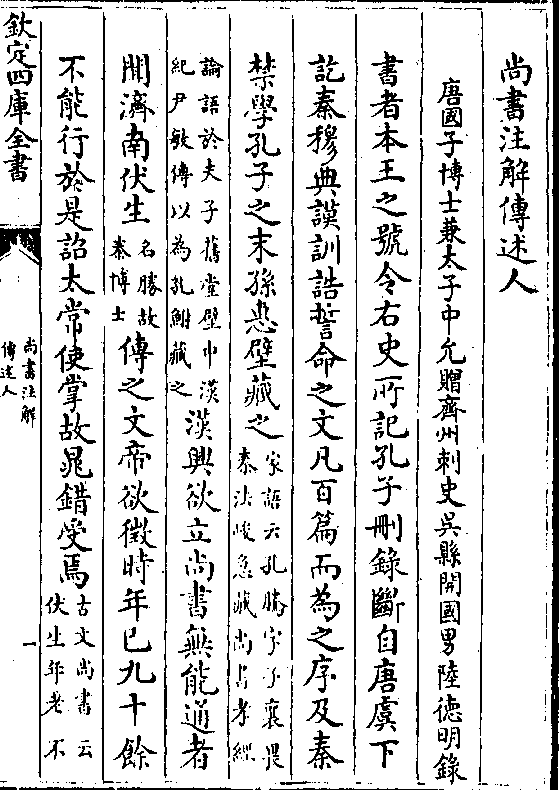 尚書注解傳述人
唐國子博士兼太子中允贈齊州刺史吳縣開國男陸德明錄
書者本王之號令右史所記孔子刪錄斷自唐虞下
訖秦穆典謨訓誥誓命之文凡百篇而為之序及秦
禁學孔子之末孫惠壁藏之
家語云孔騰字子襄畏
秦法峻急藏尚書孝經
論語於夫子舊堂壁中漢
紀尹敏傳以為孔鮒藏之
漢興欲立尚書無能通者
聞濟南伏生
名勝故
秦博士
傳之文帝欲徵時年已九十餘
不能行於是詔太常使掌故晁錯受焉
古文尚書云
伏生年老不
欽定四庫全書
尚書注解
傳述人
一